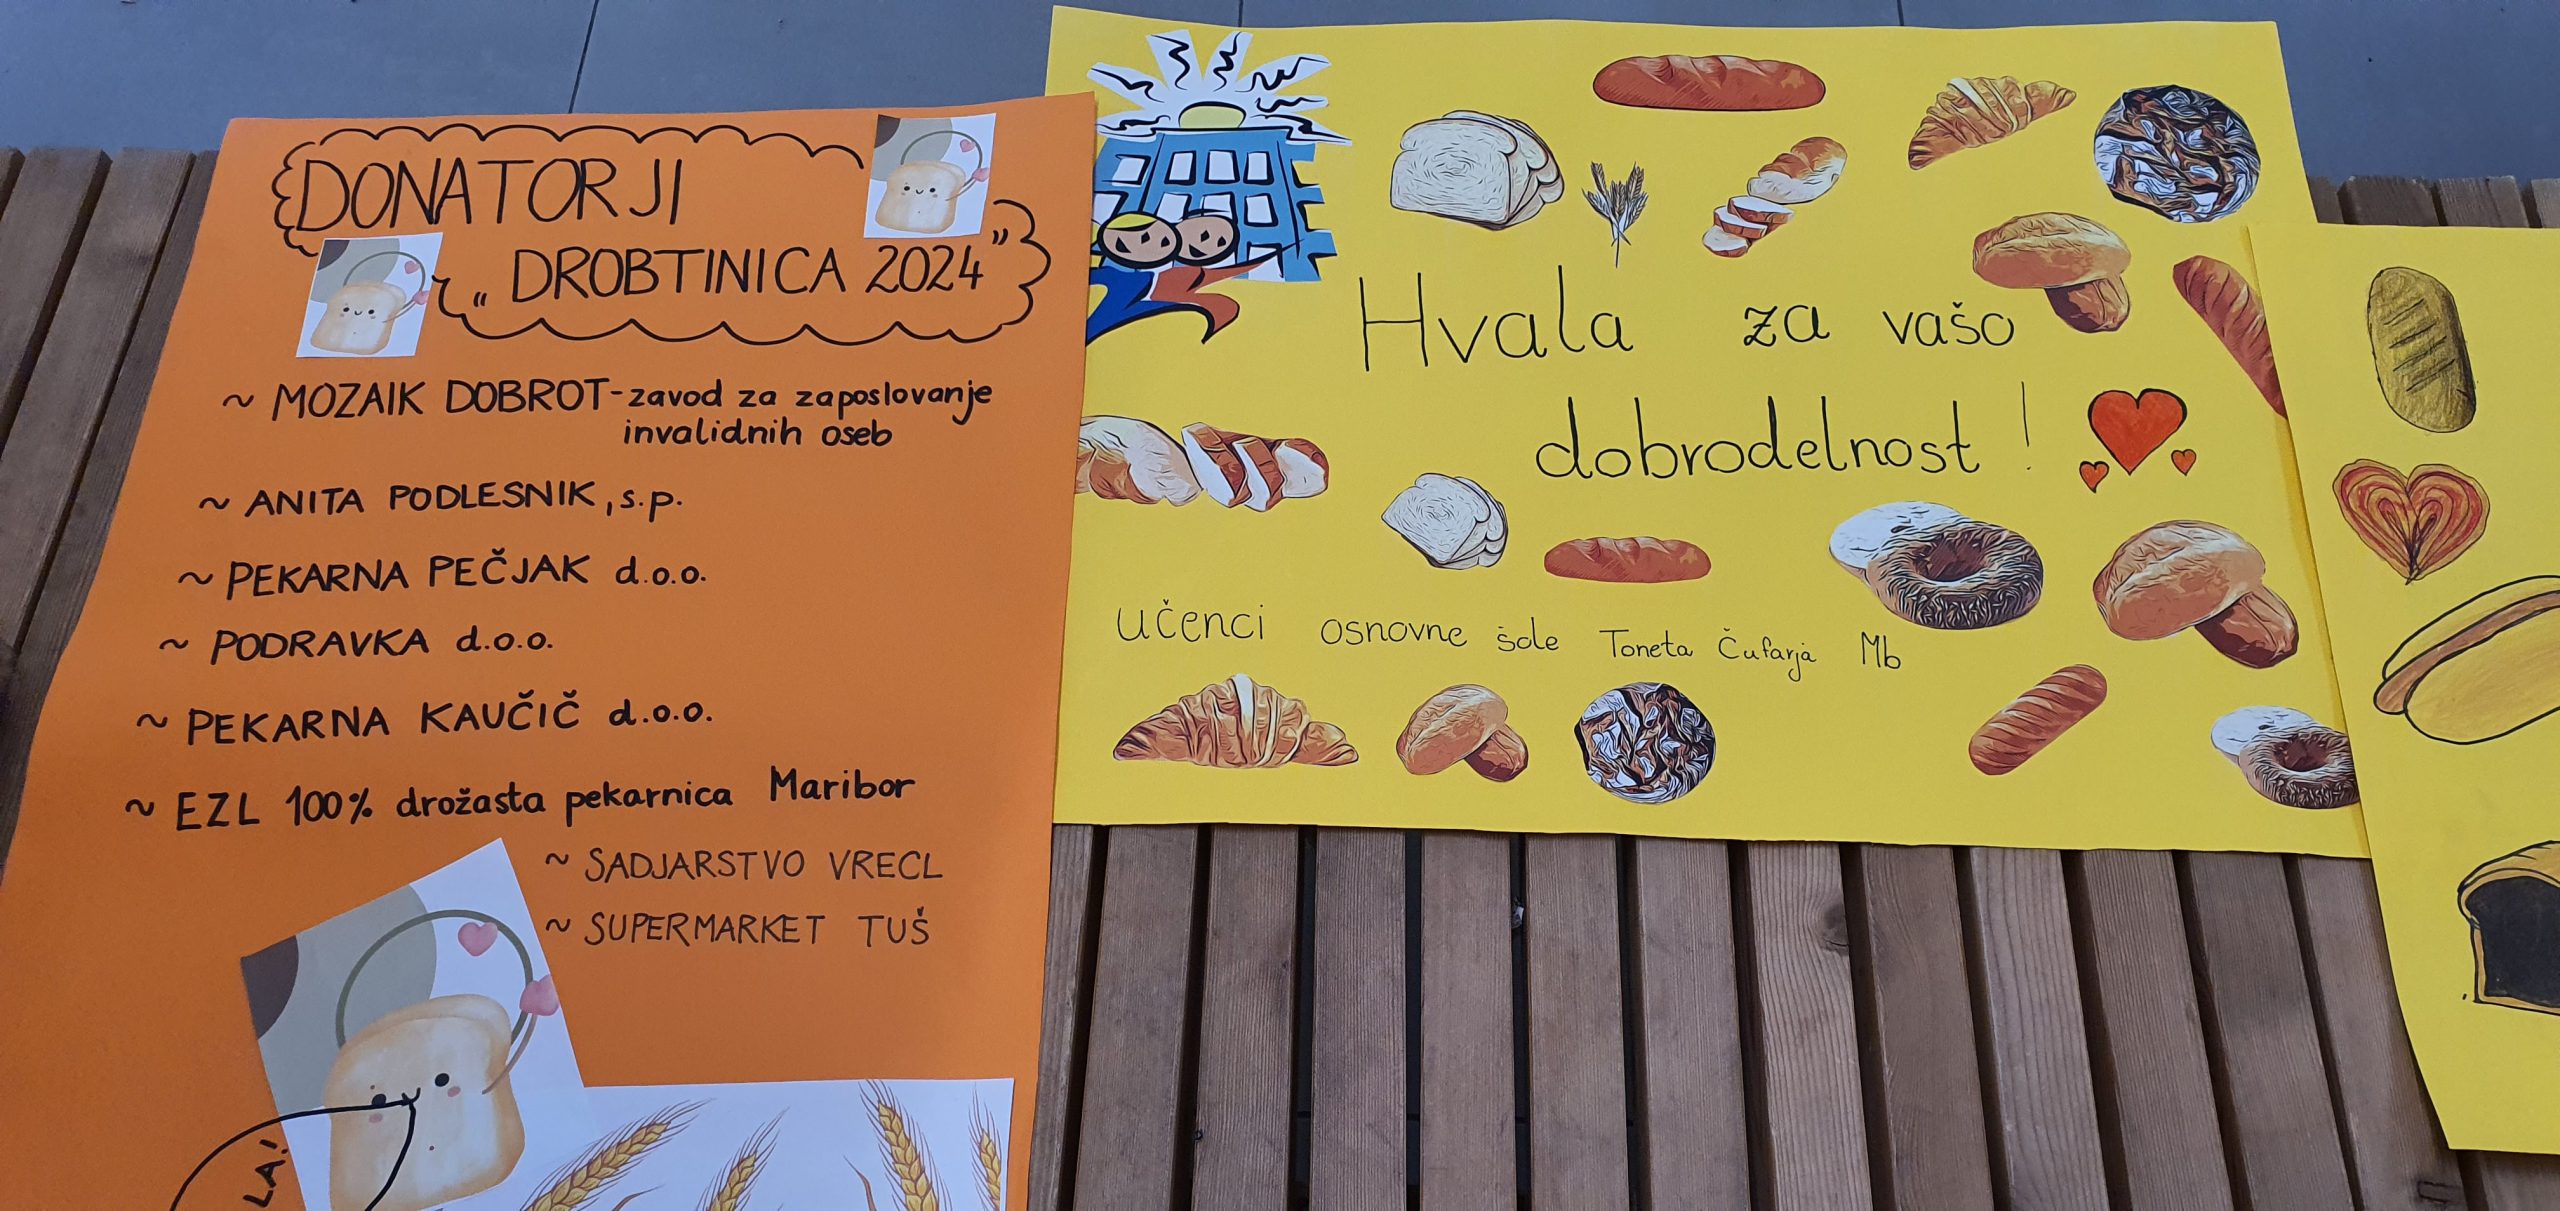 DONATORJI
„DROBTINICA 2024”
~ MOZAIK DOBROT-zavod za zaposlovanje
invalidnih oseb
~ ANITA PODLESNIK, s.p.
~ PEKARNA PEČJAK d.o.o.
~ PODRAVKA d.o.o.
~ PEKARNA KAUČIČ d.o.o.
~ EZL 100% drožasta pekarnica Maribor
~ SADJARSTVO VRECL
~ SUPERMARKET TUŠ
LA!
Hvala za vašo
dobrodelnost!
Učenci osnovne šole Toneta Čufarja Mb